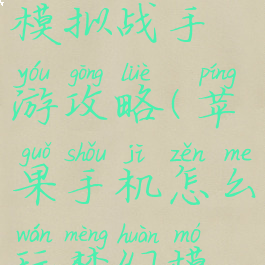 模拟战手
yóu gōng lüè píng
游攻略(苹
guǒ shǒu jī zěn me
果手机怎么
wán mèng huàn mó
玩梦幻模